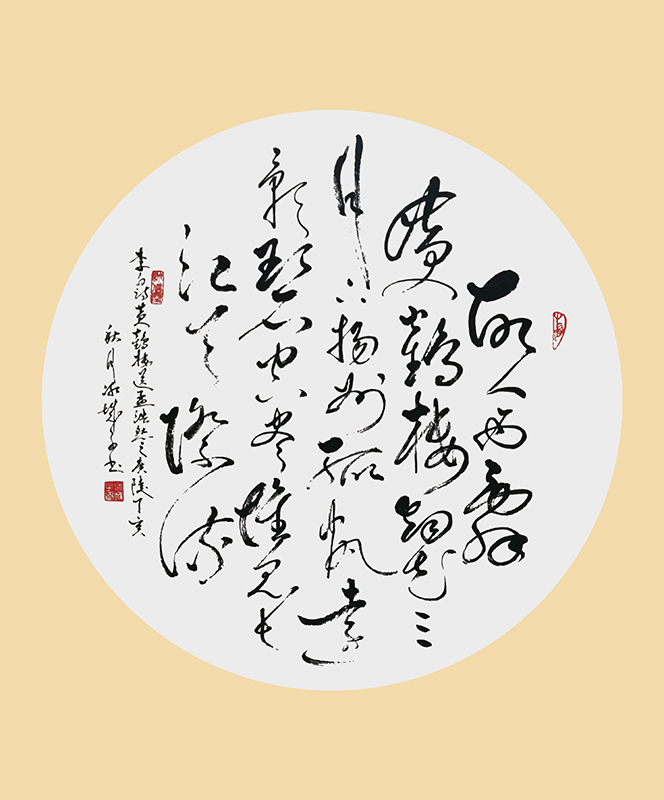 故人西辭
黄鶴樓煙花三
月下揚州孤帆遠
影碧空盡惟見長
江天際流
李白詩黄鶴樓送孟浩然之廣陵丁亥
秋月冰城書